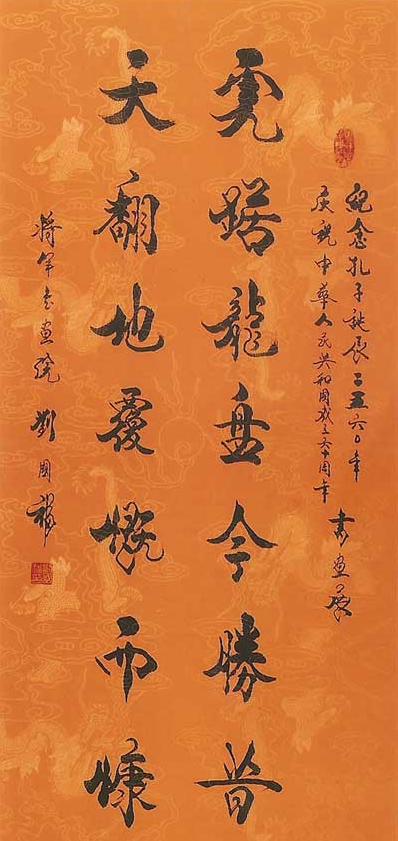 紀念孔子誕辰二五六〇年
慶祝中華人民共和國成立六十周年
書画展
虎踞龍盤今勝昔
天翻地覆慨而慷
將军書画院 劉國